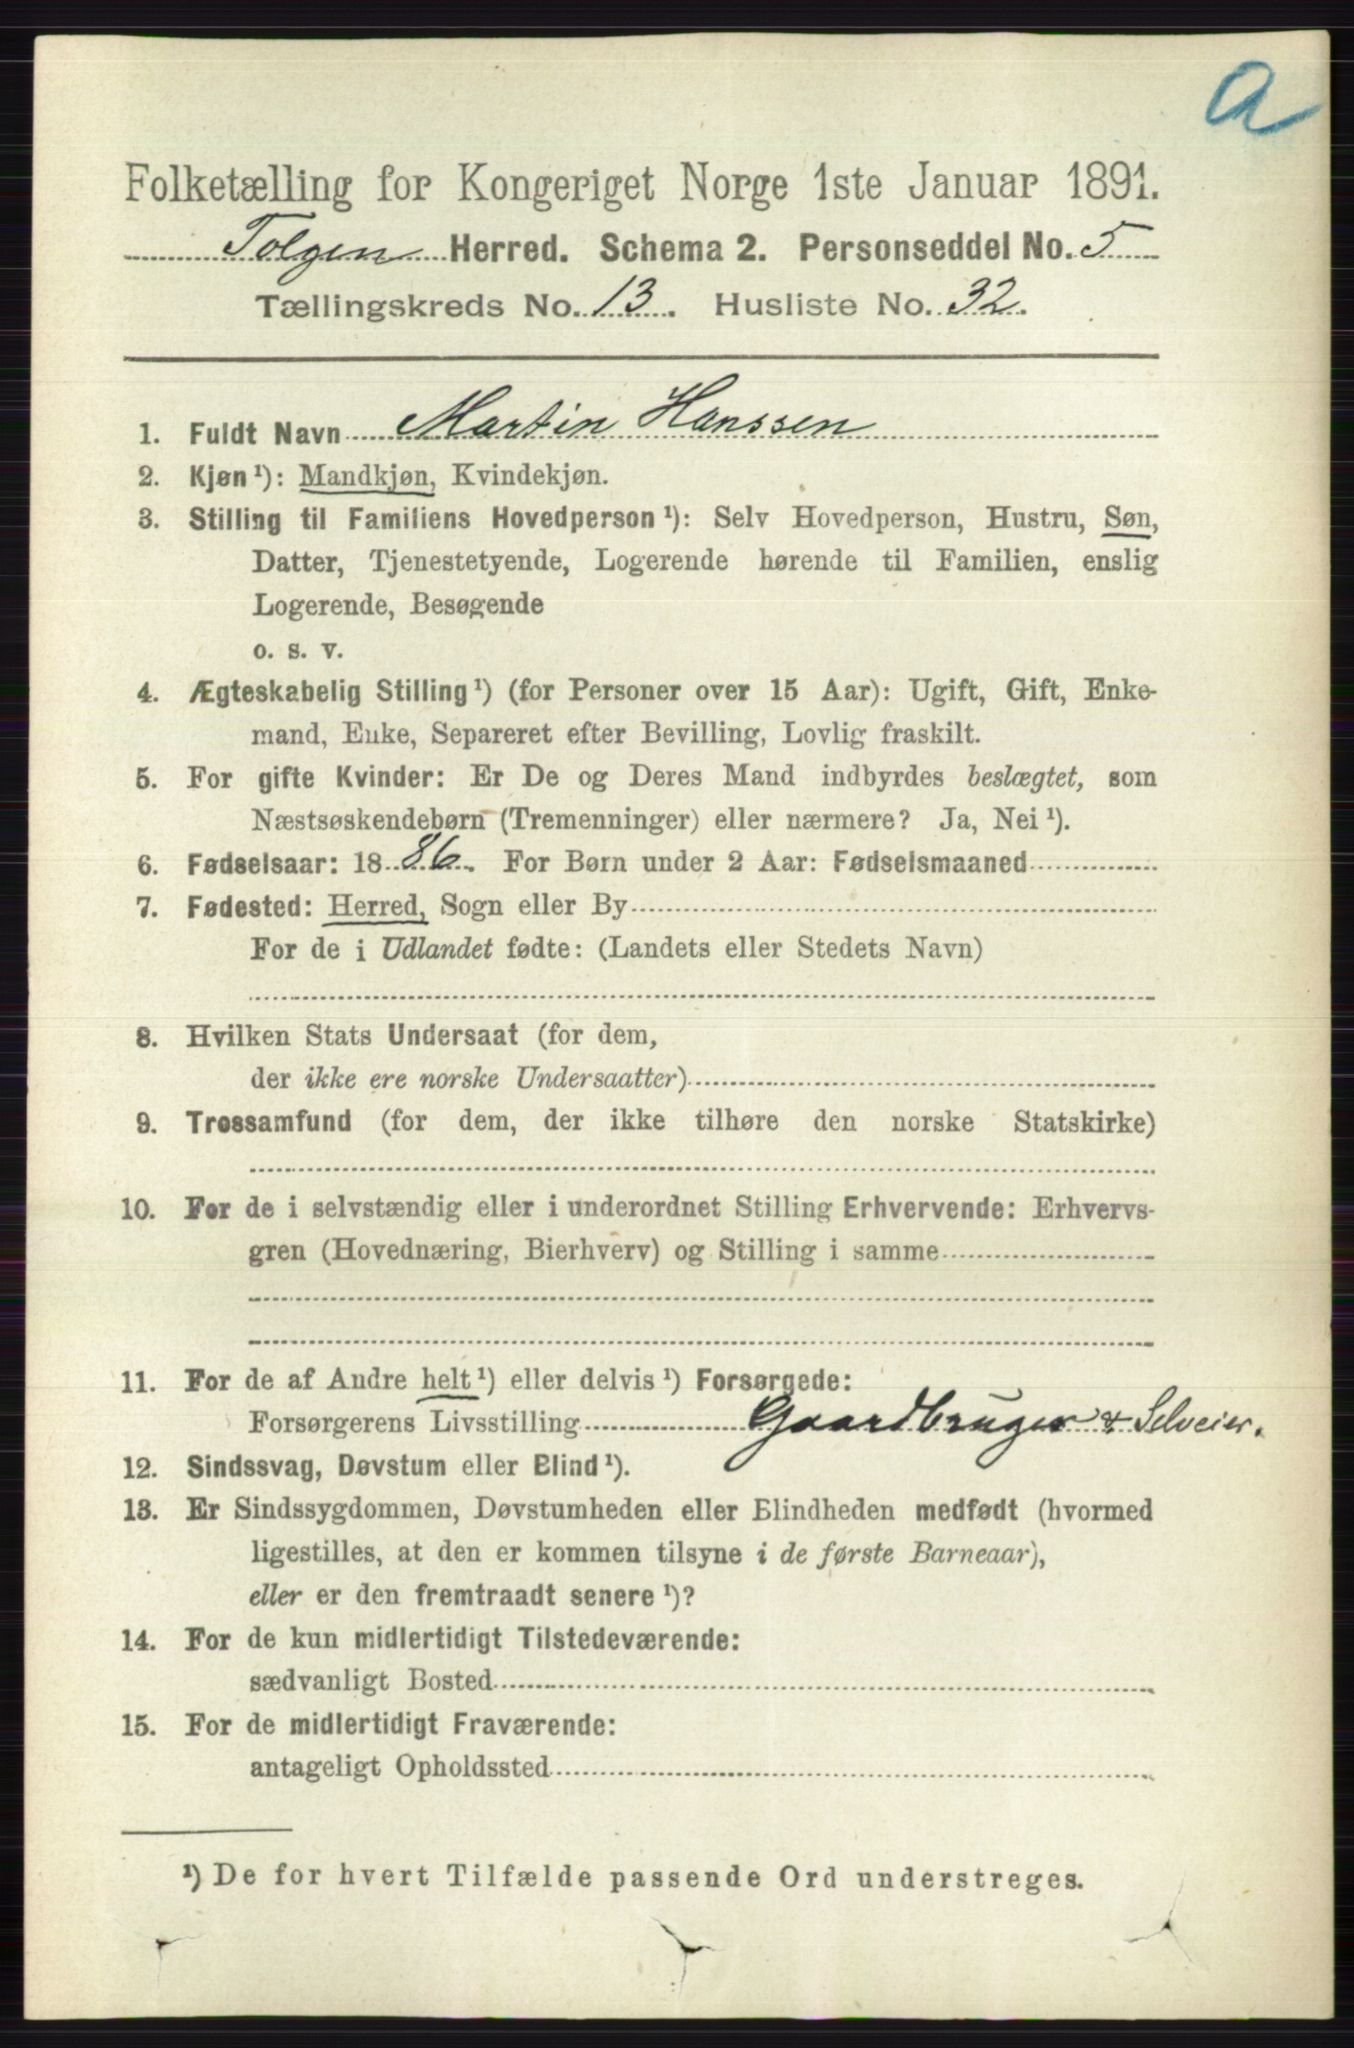 a
Folketælling for Kongeriget Norge 1ste Januar 1891.
Tolgen Herred. Schema 2. Personseddel No. 5
Tællingskreds No. 13. Husliste No. 32.
1. Fuldt Navn Martin Hanssen
2. Kjøn ¹): Mandkjøn, Kvindekjøn.
3. Stilling til Familiens Hovedperson ¹): Selv Hovedperson, Hustru, Søn,
Datter, Tjenestetyende, Logerende hørende til Familien, enslig
Logerende, Besøgende
o. s. v.
4. Ægteskabelig Stilling ¹) (for Personer over 15 Aar): Ugift, Gift, Enke-
mand, Enke, Separeret efter Bevilling, Lovlig fraskilt.
5. For gifte Kvinder: Er De og Deres Mand indbyrdes beslægtet, som
Næstsøskendebørn (Tremenninger) eller nærmere? Ja, Nei ¹).
6. Fødselsaar: 1886. For Børn under 2 Aar: Fødselsmaaned
7. Fødested: Herred, Sogn eller By
For de i Udlandet fødte: (Landets eller Stedets Navn)
8. Hvilken Stats Undersaat (for dem,
der ikke ere norske Undersaatter)
9. Trossamfund (for dem, der ikke tilhøre den norske Statskirke)
10. For de i selvstændig eller i underordnet Stilling Erhvervende: Erhvervs-
gren (Hovednæring, Bierhverv) og Stilling i samme
11. For de af Andre helt ¹) eller delvis ¹) Forsørgede:
Forsørgerens Livsstilling Gaardbruger & Selveier.
12. Sindssvag, Døvstum eller Blind ¹).
13. Er Sindssygdommen, Døvstumheden eller Blindheden medfødt (hvormed
ligestilles, at den er kommen tilsyne i de første Barneaar),
eller er den fremtraadt senere ¹)?
14. For de kun midlertidigt Tilstedeværende:
sædvanligt Bosted
15. For de midlertidigt Fraværende:
antageligt Opholdssted
¹) De for hvert Tilfælde passende Ord understreges.